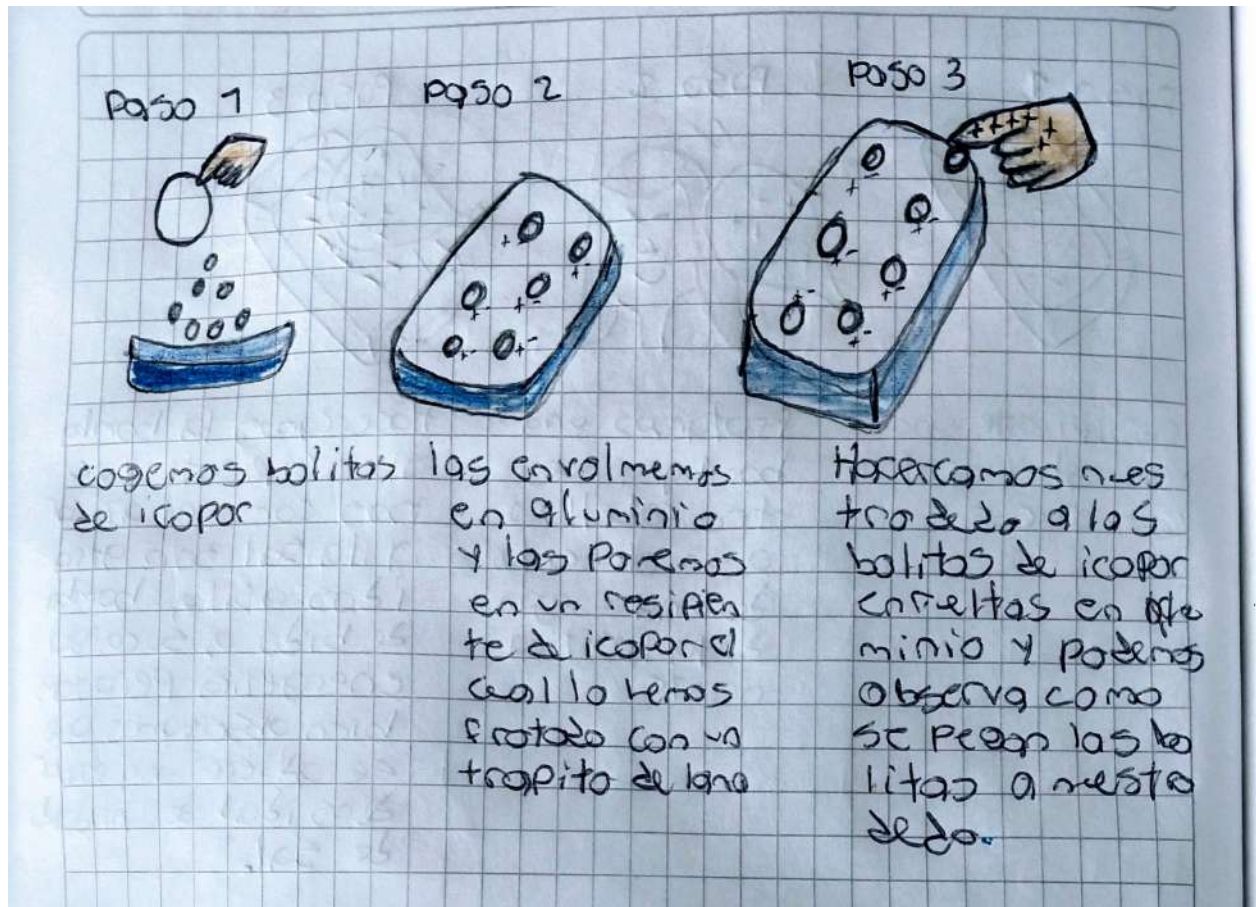 Paso 1
cogemos bolitas
de icopor
Paso 2
las envolmemos
en aluminio
y las Ponemos
en un resipien
te de icopor el
cual lo hemos
frotado con un
trapito de lana
Paso 3
Hacercamos nues
tro dedo a las
bolitas de icopor
envueltas en
minio y podemos
observa como
se pegan las bo
litas a nuestro
dedo.